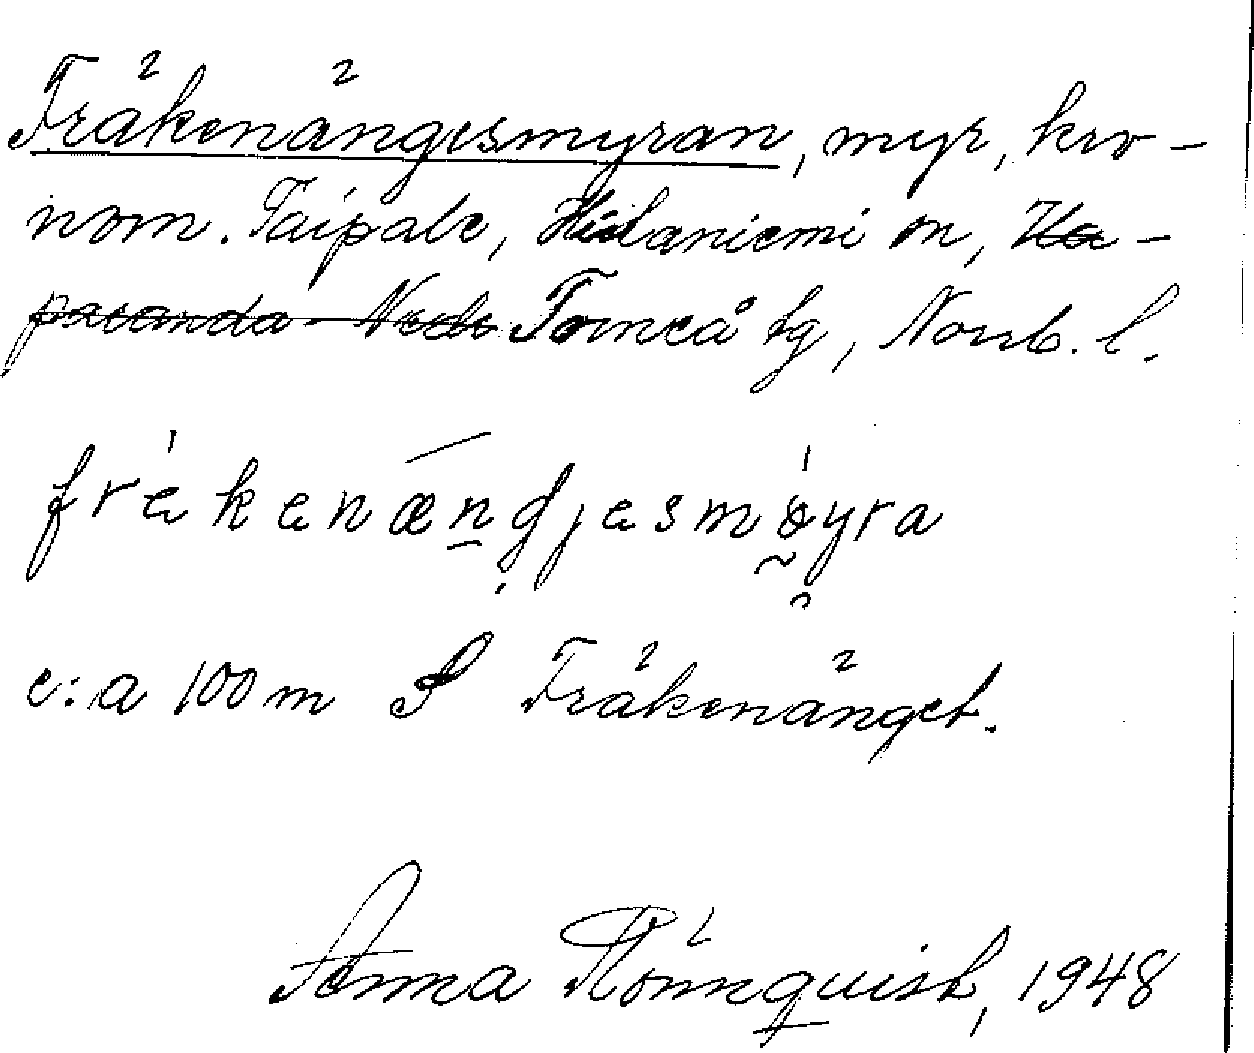 Fräkenängesmyran, myr, kro-
nom. Taipale, Hietaniemi sn, Ha-
paranda - Nede Torneå tg, Norrb. l.
frekenændjesmøyra
c:a 100 m S Fräkenänget.
Anna Rönnquist, 1948